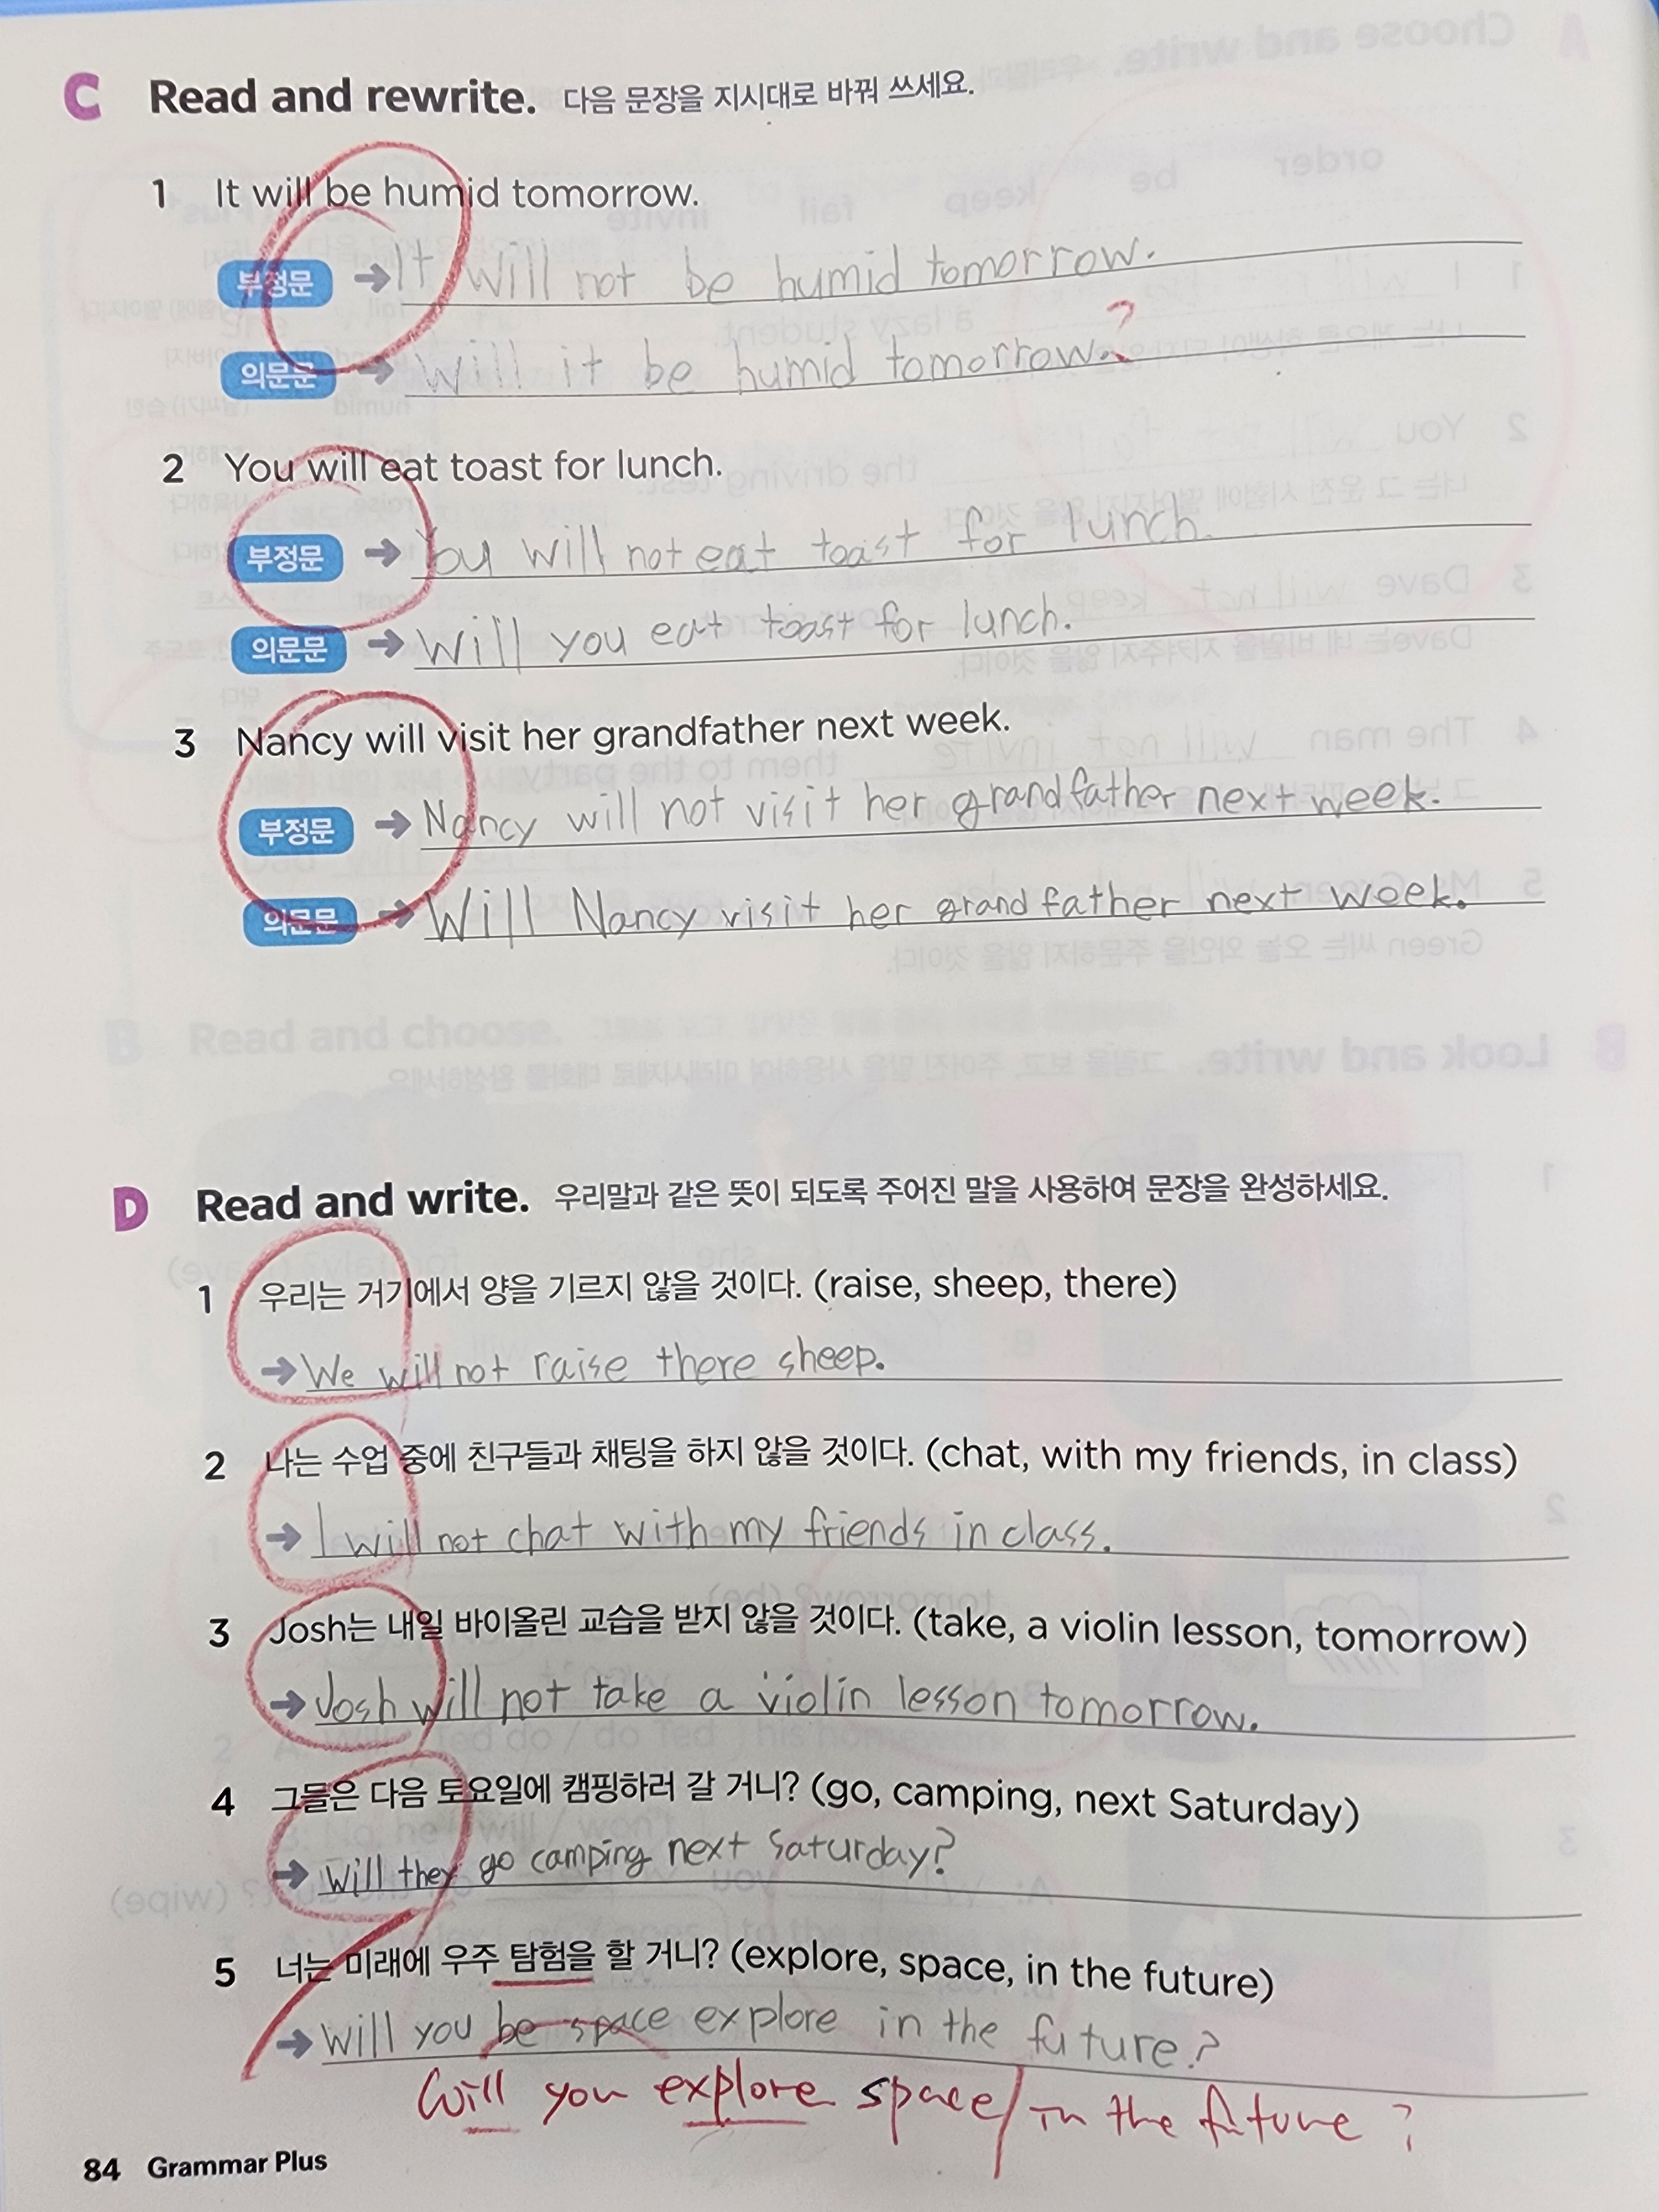 C Read and rewrite. 다음 문장을 지시대로 바꿔 쓰세요.
1 It will be humid tomorrow.
부정문 → It will not be humid tomorrow.
?
의문문 → Will it be humid tomorrow.
2 You will eat toast for lunch.
부정문 → You will not eat toast for lunch.
의문문 → Will you eat toast for lunch.
3 Nancy will visit her grandfather next week.
부정문 → Nancy will not visit her grandfather next week.
의문문 → Will Nancy visit her grandfather next week.
D Read and write. 우리말과 같은 뜻이 되도록 주어진 말을 사용하여 문장을 완성하세요.
1 우리는 거기에서 양을 기르지 않을 것이다. (raise, sheep, there)
→ We will not raise there sheep.
2 나는 수업 중에 친구들과 채팅을 하지 않을 것이다. (chat, with my friends, in class)
→ I will not chat with my friends in class.
3 Josh는 내일 바이올린 교습을 받지 않을 것이다. (take, a violin lesson, tomorrow)
→ Josh will not take a violin lesson tomorrow.
4 그들은 다음 토요일에 캠핑하러 갈 거니? (go, camping, next Saturday)
→ Will they go camping next Saturday?
5 너는 미래에 우주 탐험을 할 거니? (explore, space, in the future)
→ Will you be space explore in the future?
Will you explore space / in the future?
84 Grammar Plus